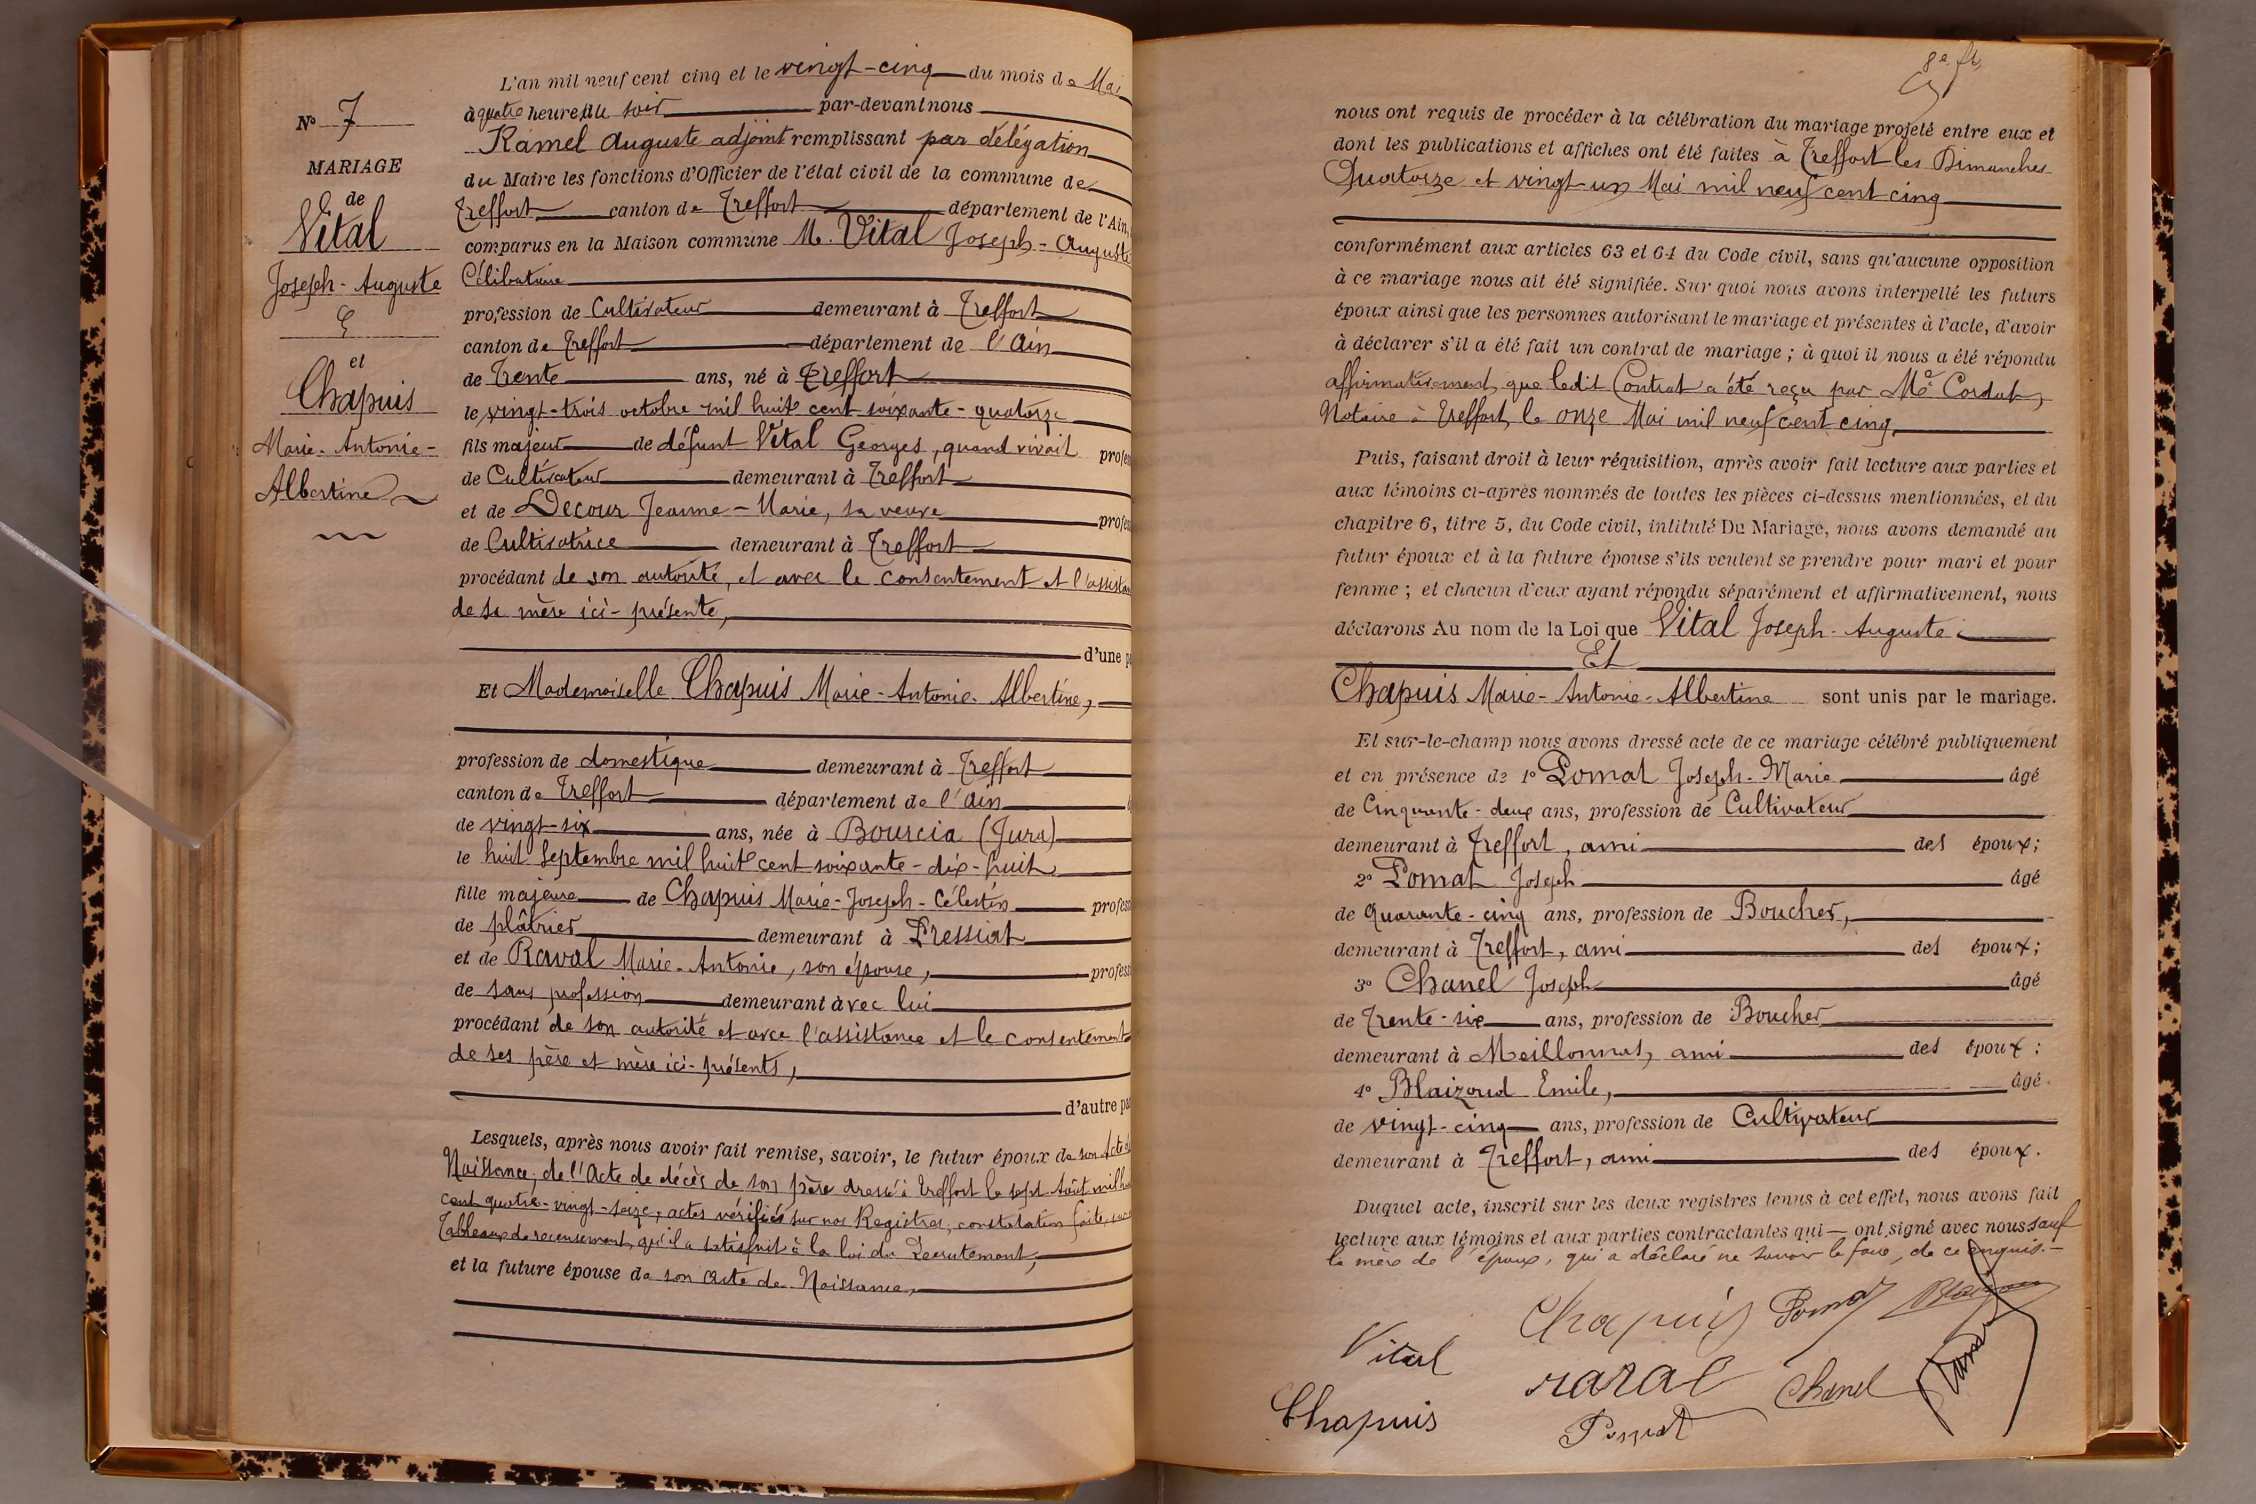 N° 7
MARIAGE
de
Vital
Joseph-Auguste
et
Chapuis
Marie-Antonie-
Albertine
L'an mil neuf cent cinq et le vingt-cinq du mois de Mai
à quatre heures du soir par-devant nous
Ramel Auguste adjoint remplissant par délégation
du Maire les fonctions d'Officier de l'état civil de la commune de
Treffort canton de Treffort département de l'Ain,
comparus en la Maison commune M. Vital Joseph-Auguste
Célibataire
profession de Cultivateur demeurant à Treffort
canton de Treffort département de l'Ain
de Trente ans, né à Treffort
le vingt-trois octobre mil huit cent soixante-quatorze
fils majeur de défunt Vital Georges, quand vivait profes
de Cultivateur demeurant à Treffort
et de Decour Jeanne-Marie, sa veuve profes
de Cultivatrice demeurant à Treffort
procédant de son autorité, et avec le consentement et l'assistan
de sa mère ici-présente,
d'une pa
Et Mademoiselle Chapuis Marie-Antonie-Albertine,
profession de domestique demeurant à Treffort
canton de Treffort département de l'Ain
de vingt-six ans, née à Bourcia (Jura)
le huit Septembre mil huit cent soixante-dix-huit
fille majeure de Chapuis Marie-Joseph-Célestin profess
de plâtrier demeurant à Pressiat
et de Raval Marie-Antonie, son épouse, profess
de sans profession demeurant avec lui
procédant de son autorité et avec l'assistance et le consentement
de ses père et mère ici-présents,
d'autre par
Lesquels, après nous avoir fait remise, savoir, le futur époux de son Acte de
Naissance; de l'Acte de décès de son père dressé à Treffort le sept Août mil hui
cent quatre-vingt-seize; actes vérifiés sur nos Registres; constatation faite, sur
Tableaux de recensement, qu'il a satisfait à la loi du Recrutement,
et la future épouse de son Acte de Naissance,
8e ft
nous ont requis de procéder à la célébration du mariage projeté entre eux et
dont les publications et affiches ont été faites à Treffort les Dimanches
Quatorze et vingt-un Mai mil neuf cent cinq
conformément aux articles 63 et 64 du Code civil, sans qu'aucune opposition
à ce mariage nous ait été signifiée. Sur quoi nous avons interpellé les futurs
époux ainsi que les personnes autorisant le mariage et présentes à l'acte, d'avoir
à déclarer s'il a été fait un contrat de mariage; à quoi il nous a été répondu
affirmativement, que ledit Contrat a été reçu par Me Cordat,
Notaire à Treffort, le onze Mai mil neuf cent cinq,
Puis, faisant droit à leur réquisition, après avoir fait lecture aux parties et
aux témoins ci-après nommés de toutes les pièces ci-dessus mentionnées, et du
chapitre 6, titre 5, du Code civil, intitulé Du Mariage, nous avons demandé au
futur époux et à la future épouse s'ils veulent se prendre pour mari et pour
femme; et chacun d'eux ayant répondu séparément et affirmativement, nous
déclarons Au nom de la Loi que Vital Joseph-Auguste
Et
Chapuis Marie-Antonie-Albertine sont unis par le mariage.
Et sur-le-champ nous avons dressé acte de ce mariage célébré publiquement
et en présence de 1° Pomat Joseph-Marie âgé
de Cinquante-deux ans, profession de Cultivateur
demeurant à Treffort, ami des époux;
2° Pomat Joseph âgé
de Quarante-cinq ans, profession de Boucher,
demeurant à Treffort, ami des époux;
3° Chanel Joseph âgé
de Trente-six ans, profession de Boucher
demeurant à Meillonnas, ami des époux;
4° Blaizoud Emile, âgé
de vingt-cinq ans, profession de Cultivateur
demeurant à Treffort, ami des époux.
Duquel acte, inscrit sur les deux registres tenus à cet effet, nous avons fait
lecture aux témoins et aux parties contractantes qui ont signé avec nous sauf
la mère de l'époux, qui a déclaré ne savoir le faire, de ce enquis.
Chapuis Pomat
Vital
raval Chanel
Chapuis Pomat